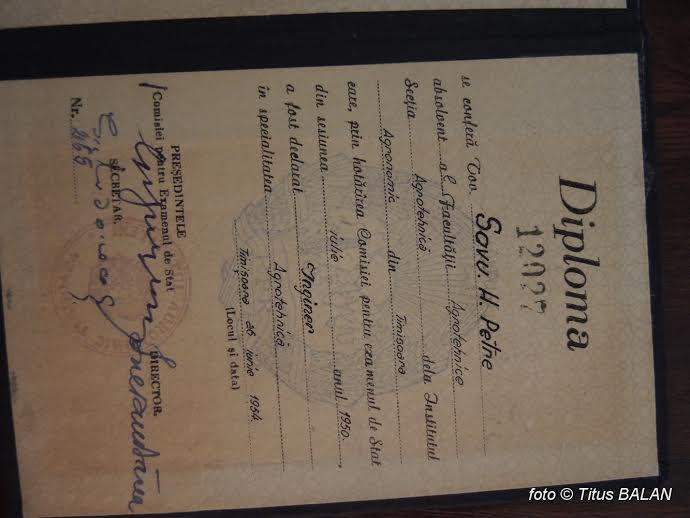 Diploma
12027
se conferă Tov. Savu. H. Petre
absolvent al Facultății Agrotehnice
Secția Agrotehnică dela Institutul
Agronomic din Timișoara
care, prin hotărîrea Comisiei pentru examenul de Stat
din sesiunea iulie anul 1950,
a fost declarat Inginer
în specialitatea Agrotehnică
Timișoara 26 iunie 1954.
(Locul și data)
PREȘEDINTELE
Comisiei pentru Examenul de Stat
DIRECTOR,
SECRETAR,
Nr.
foto © Titus BALAN